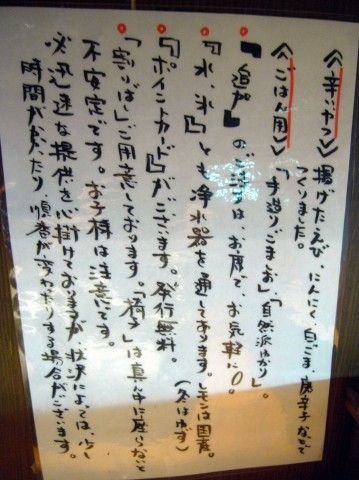 《辛いヤツ》揚げたえび、にんにく、白ごま、唐辛子などで
つくりました。
《ごはん用》「手造りごましお」「自然派ゆかり」。
『追加』の ご注文は、お席で、お気軽に0。
『水、氷』とも浄水器を通しております。レモンは国産。
(冬はゆず)
『ポイントカード』がございます。発行無料。
「割りばし」ご用意しております。「椅子」は真ん中に座らないと
不安定です。お子様は注意です。
必迅速な提供を心掛けておりますが、状況によっては、少し
時間がかかったり、順番が変わったりする場合がございます。